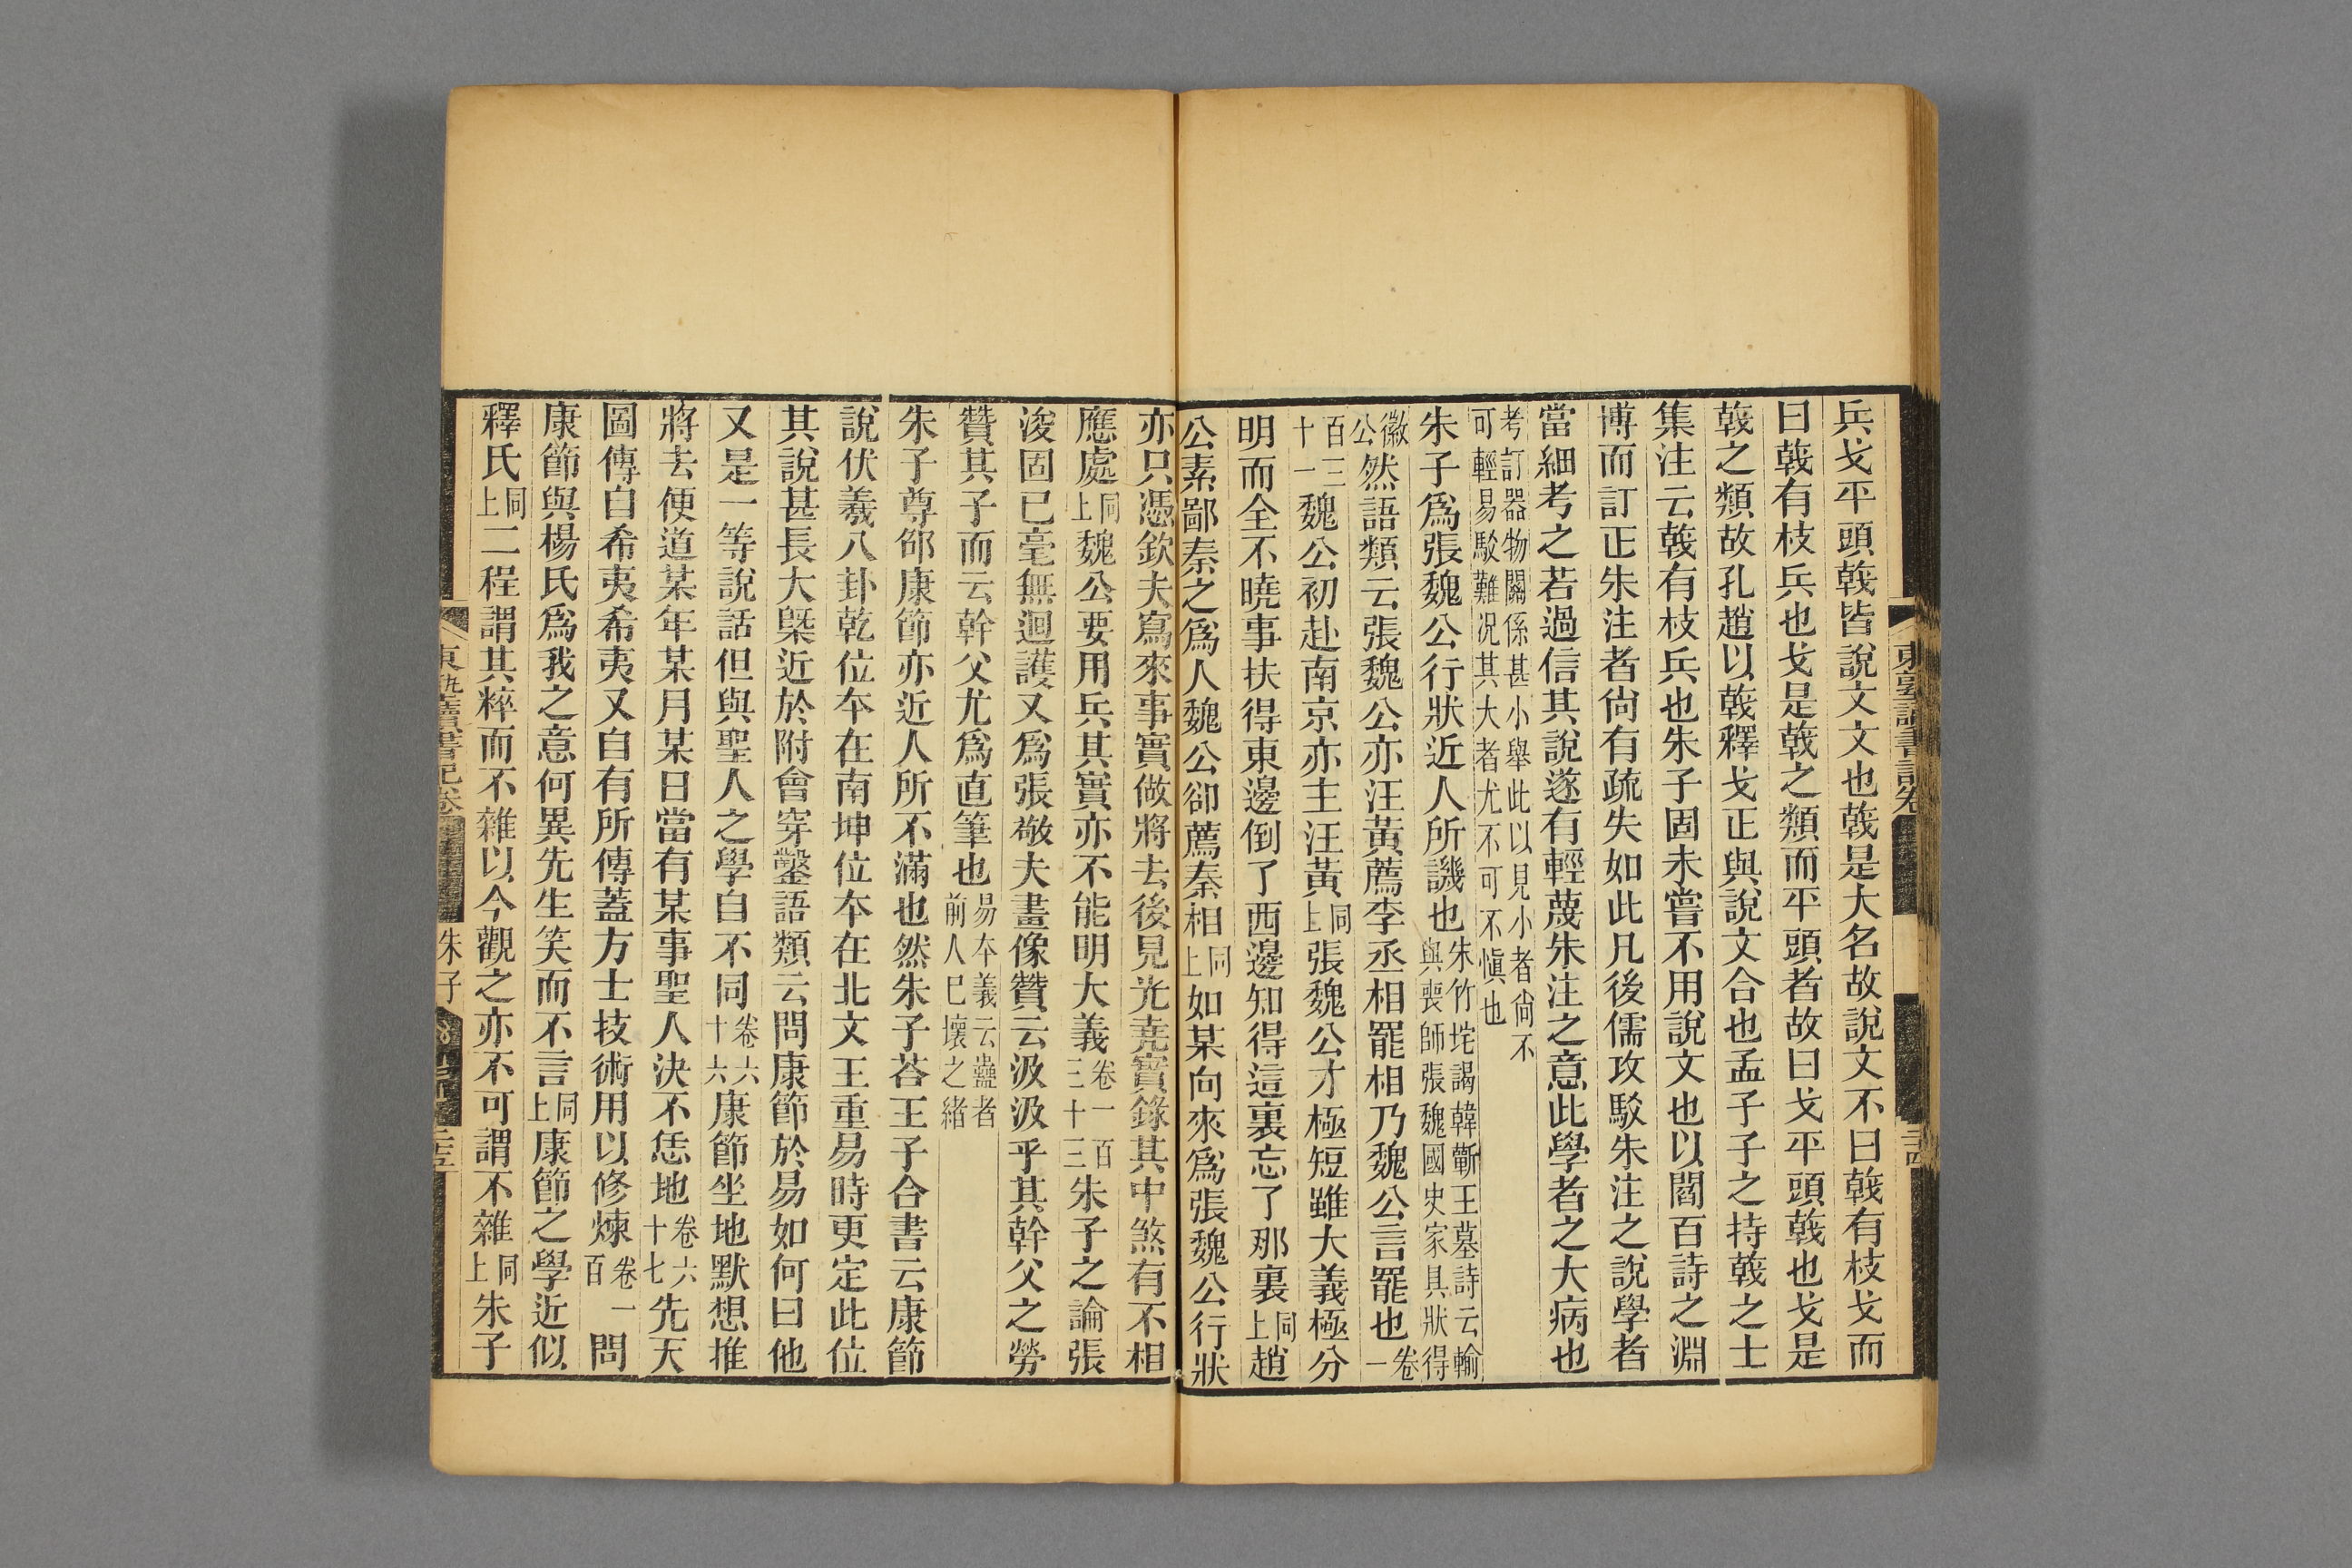 兵戈平頭戟皆說文文也戟是大名故說文不曰戟有枝戈而
曰戟有枝兵也戈是戟之類而平頭者故曰戈平頭戟也戈是
戟之類故孔趙以戟釋戈正與說文合也孟子子之持戟之士
集注云戟有枝兵也朱子固未嘗不用說文也以閻百詩之淵
博而訂正朱注者尙有疏失如此凡後儒攻駁朱注之說學者
當細考之若過信其說遂有輕蔑朱注之意此學者之大病也
考訂器物關係甚小舉此以見小者尙不
可輕易駁難况其大者尤不可不愼也
朱子爲張魏公行狀近人所譏也朱竹垞謁韓蘄王墓詩云輸
與喪師張魏國史家具狀得
徽
公然語類云張魏公亦汪黃薦李丞相罷相乃魏公言罷也卷
一
百三
十一魏公初赴南京亦主汪黃同上張魏公才極短雖大義極分
明而全不曉事扶得東邊倒了西邊知得這裏忘了那裏同上趙
公素鄙秦之爲人魏公卻薦秦相同上如某向來爲張魏公行狀
亦只憑欽夫寫來事實做將去後見光堯實錄其中煞有不相
應處同上魏公要用兵其實亦不能明大義卷一百
三十三朱子之論張
浚固已毫無迴護又爲張敬夫畫像贊云汲汲乎其幹父之勞
贊其子而云幹父尤爲直筆也易本義云蠱者
前人已壞之緒
朱子尊邵康節亦近人所不滿也然朱子荅王子合書云康節
說伏羲八卦乾位本在南坤位本在北文王重易時更定此位
其說甚長大槩近於附會穿鑿語類云問康節於易如何曰他
又是一等說話但與聖人之學自不同卷六
十六康節坐地默想推
將去便道某年某月某日當有某事聖人決不恁地卷六
十七先天
圖傳自希夷希夷又自有所傳蓋方士技術用以修煉卷一
百問
康節與楊氏爲我之意何異先生笑而不言同上康節之學近似
釋氏同上二程謂其粹而不雜以今觀之亦不可謂不雜同上朱子
東塾讀書記卷
朱子